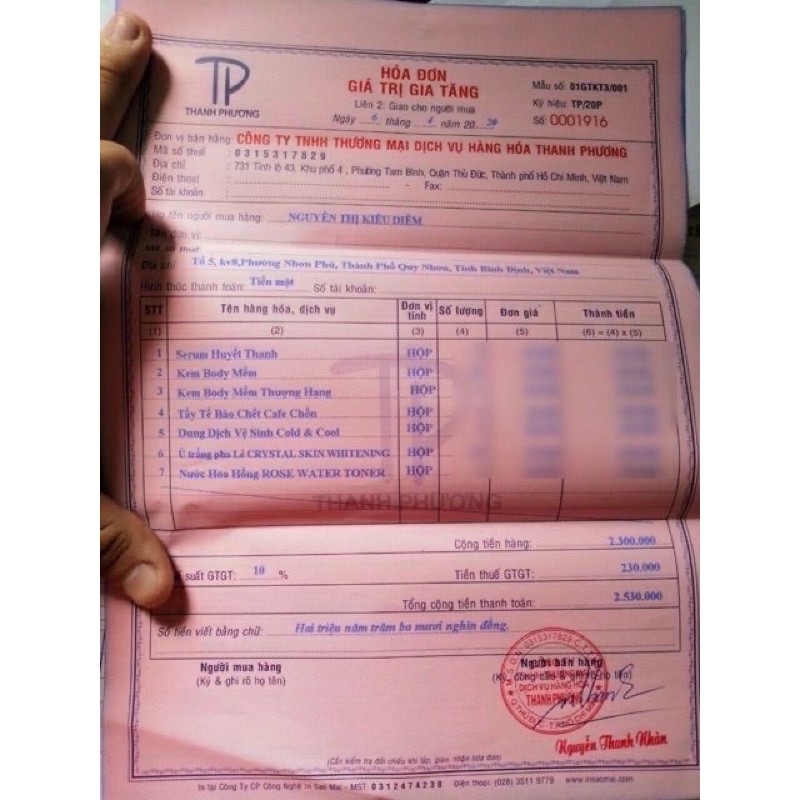 TP
THANH PHƯƠNG
HÓA ĐƠN
GIÁ TRỊ GIA TĂNG
Liên 2: Giao cho người mua
Ngày 6 tháng 4 năm 20 20
Mẫu số: 01GTKT3/001
Ký hiệu: TP/20P
Số: 0001916
Đơn vị bán hàng: CÔNG TY TNHH THƯƠNG MẠI DỊCH VỤ HÀNG HÓA THANH PHƯƠNG
Mã số thuế : 0315317829
Địa chỉ : 731 Tỉnh lộ 43, Khu phố 4 , Phường Tam Bình, Quận Thủ Đức, Thành phố Hồ Chí Minh, Việt Nam
Điện thoại : - Fax:
Số tài khoản :
Họ tên người mua hàng: NGUYỄN THỊ KIỀU DIỄM
Tên đơn vị:
Mã số thuế:
Địa chỉ: Tổ 5, kv8,Phường Nhơn Phú, Thành Phố Quy Nhơn, Tỉnh Bình Định, Việt Nam
Hình thức thanh toán: Tiền mặt Số tài khoản:
STT Tên hàng hóa, dịch vụ Đơn vị tính Số lượng Đơn giá Thành tiền
(1) (2) (3) (4) (5) (6) = (4) x (5)
1 Serum Huyết Thanh HỘP
2 Kem Body Mềm HỘP
3 Kem Body Mềm Thượng Hạng HỘP
4 Tẩy Tế Bào Chết Cafe Chồn HỘP
5 Dung Dịch Vệ Sinh Cold & Cool HỘP
6 Ủ trắng pha Lê CRYSTAL SKIN WHITENING HỘP
7 Nước Hoa Hồng ROSE WATER TONER HỘP
THANH PHƯƠNG
Cộng tiền hàng: 2.300.000
suất GTGT: 10 % Tiền thuế GTGT: 230.000
Tổng cộng tiền thanh toán: 2.530.000
Số tiền viết bằng chữ: Hai triệu năm trăm ba mươi nghìn đồng.
Người mua hàng
(Ký & ghi rõ họ tên)
Người bán hàng
(Ký, đóng dấu & ghi rõ họ tên)
M.S.D.N: 0315317829
DỊCH VỤ HÀNG HÓA
THANH PHƯƠNG
Nguyễn Thanh Nhân
(Cần kiểm tra đối chiếu khi lập, giao, nhận hóa đơn)
In tại Công Ty CP Công Nghệ In Sao Mai - MST: 0312474238 Điện thoại: (028) 3511 9779 www.insaomai.com